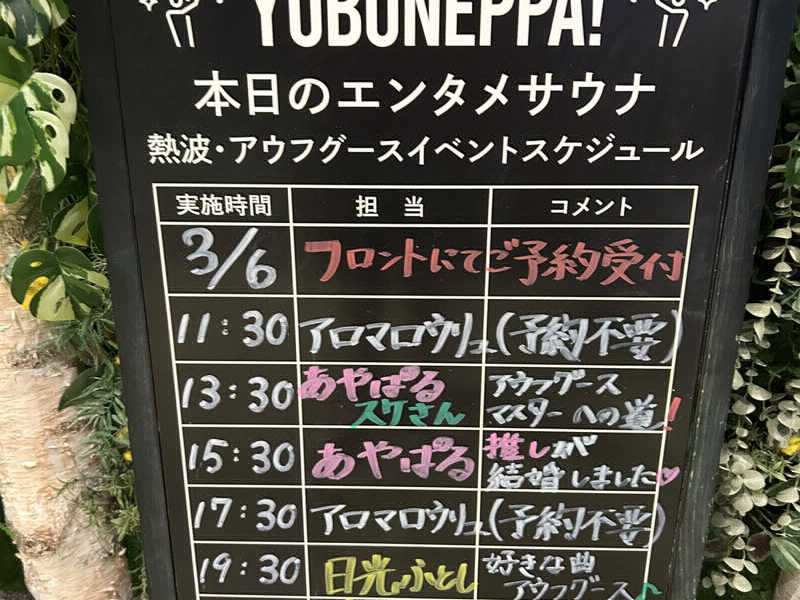 YOBUNEPPA!
本日のエンタメサウナ
熱波・アウフグースイベントスケジュール
実施時間 担当 コメント
3/6 フロントにてご予約受付
11:30 アロマロウリュ(予約不要)
13:30 あやぱる スケさん アウフグース マスターへの道!
15:30 あやぱる 推しが 結婚しました♡
17:30 アロマロウリュ(予約不要)
19:30 日光ふとし 好きな曲 アウフグース♪